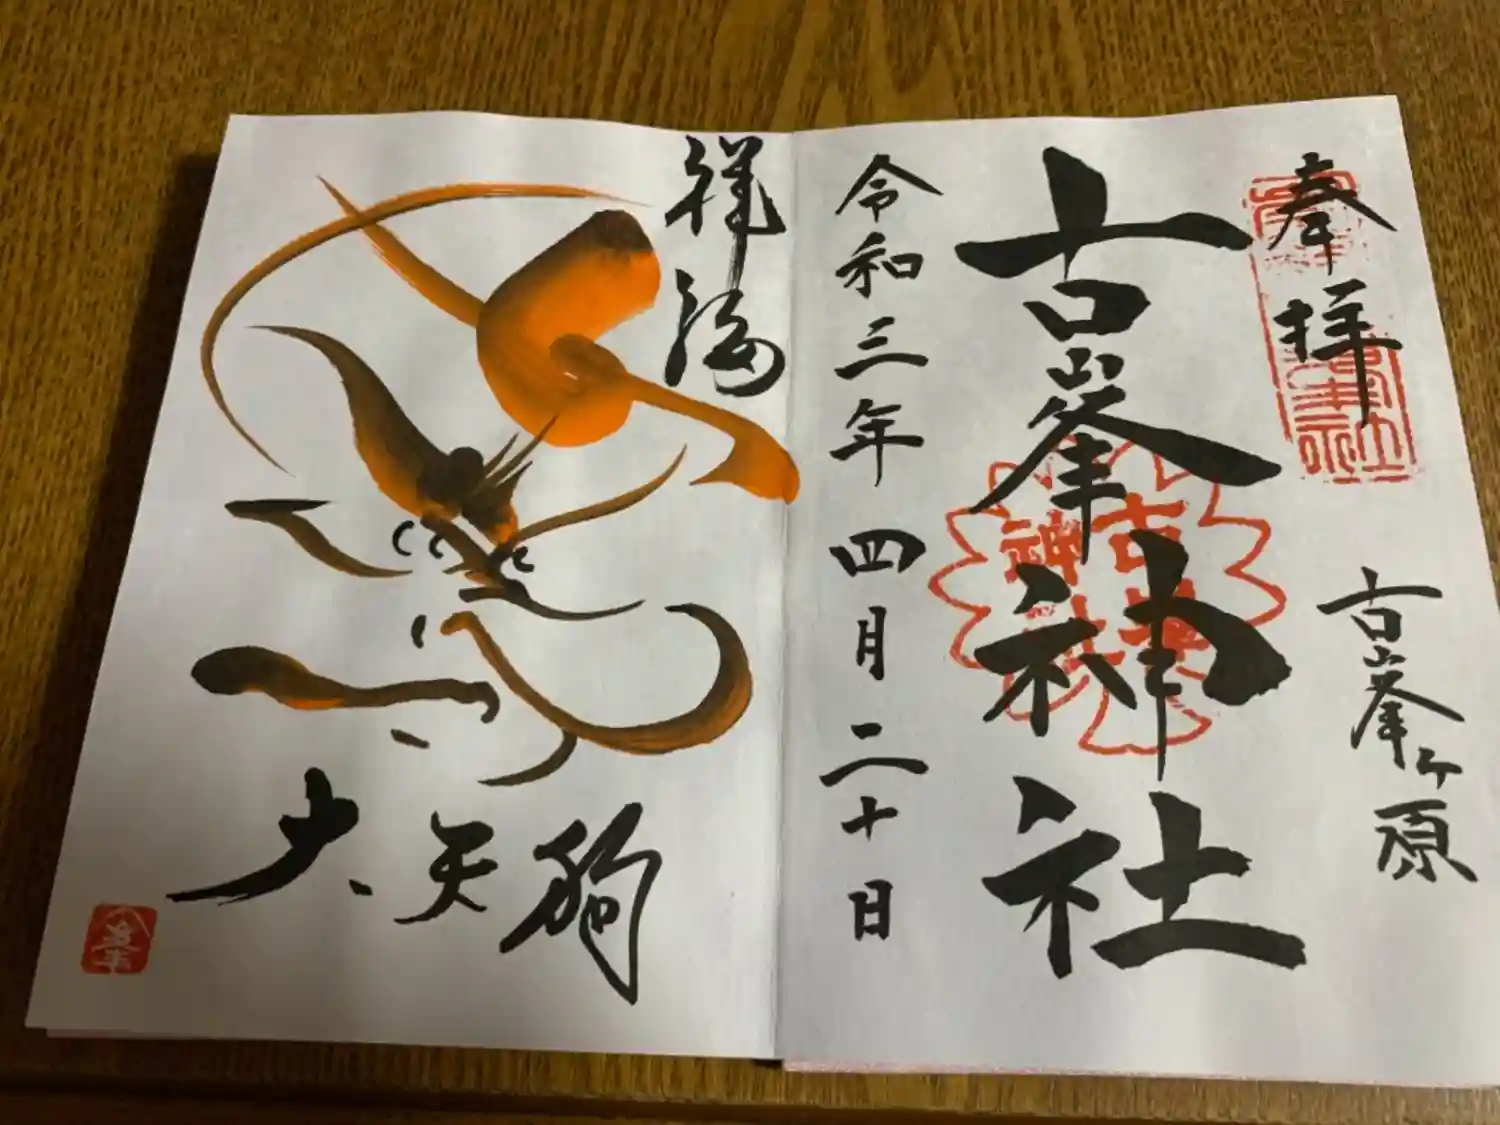 奉拝
古峯ヶ原
古峯神社
古峯神社
令和三年四月二十日
祥福
大天狗